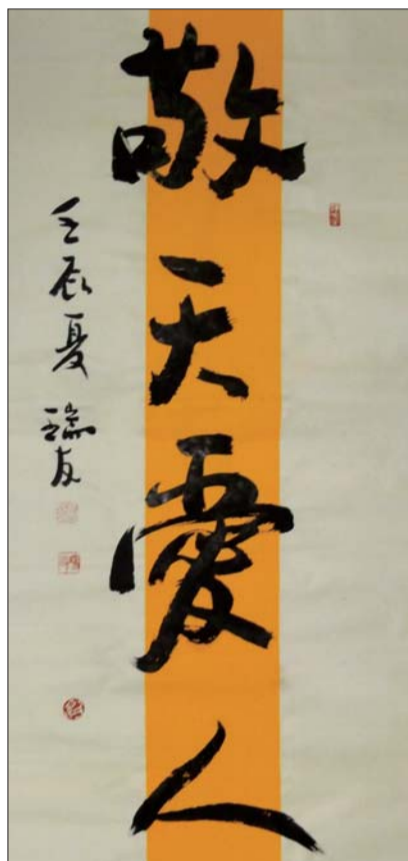 敬天愛人
壬辰夏 瑞友